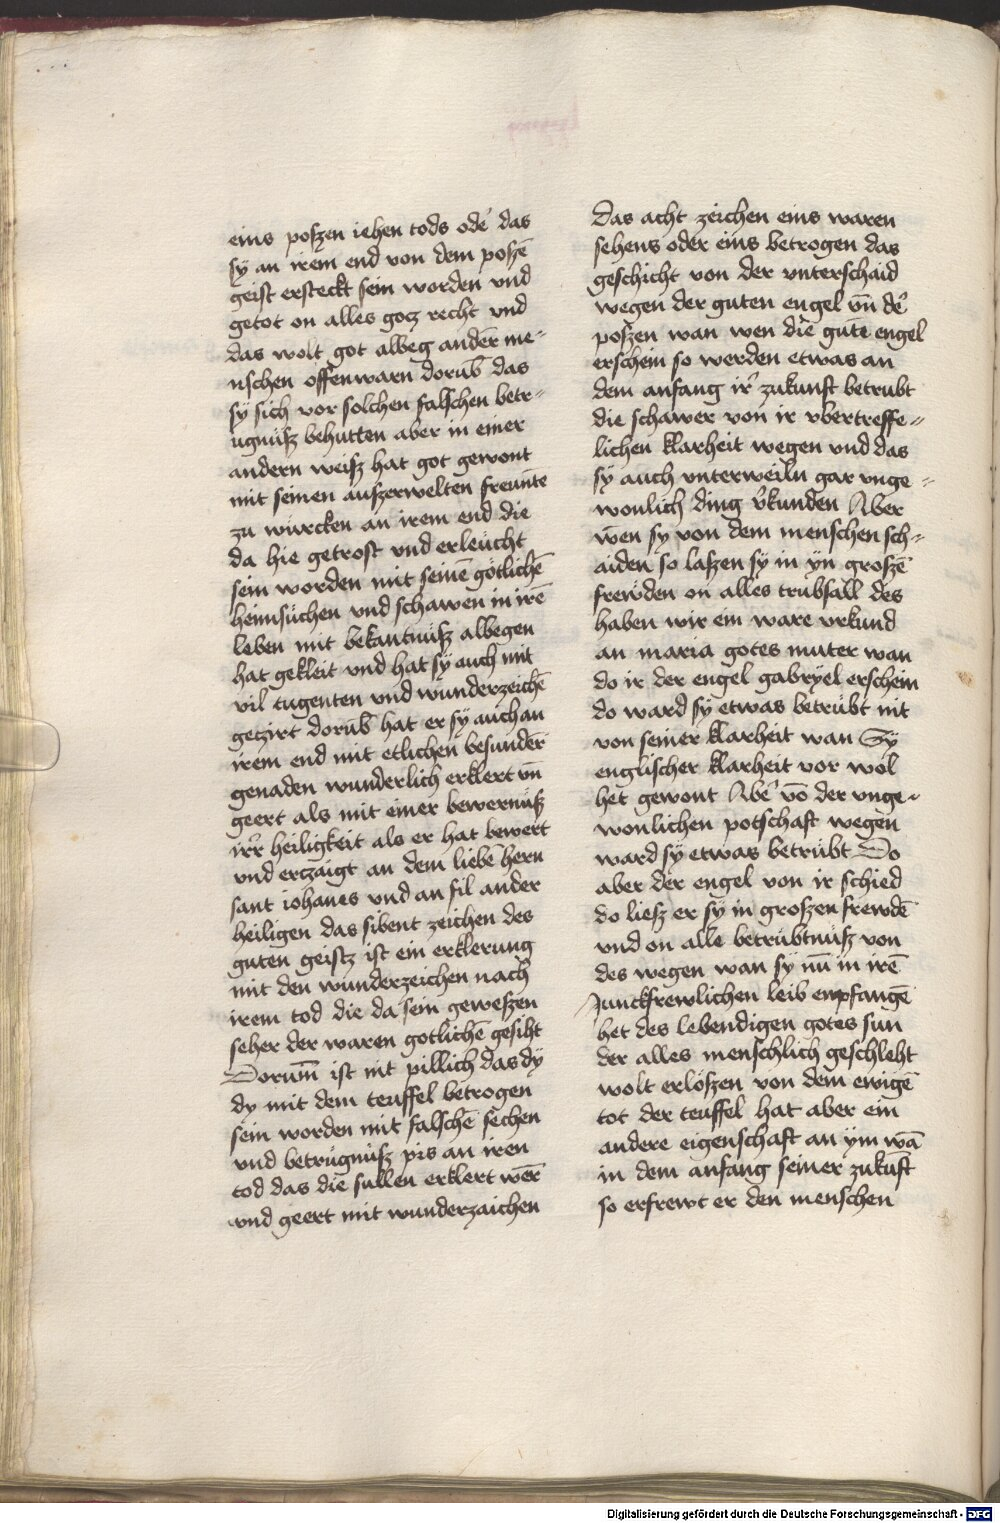 eins poszen iehen tods oder̄ das
sÿ an irem end von dem poszē
geist ersteckt sein worden vnd
getot on alles gotz recht vnd
das wolt got albeg andern me-
nschen offenwarn dorūb das
sÿ sich vor solchen falschen betr-
ugnüsz behutten aber in einer
andern weisz hat got gewont
mit seinen auszerwelten freunte
zu wurcken an irem end die
da hie getrost vnd erleücht
sein worden mit seinē götlichē
heimsüchen vnd schawen in irē
leben mit bekantnüsz albegen
hat gekleit vnd hat sÿ auch mit
vil tugenten vnd wunderzeichē
getzirt dorūb hat er sÿ auch an
irem end mit etlichen besunder
genaden wunderlich erklert vn̄
geert als mit einer bewernüsz
irr heiligkeit als er hat bewert
vnd ertzaigt an dem liebē hern
sant iohanes vnd an fil ander
heiligen das sibent zeichen des
guten geistz ist ein erklerung
mit den wunderzeichen nach
irem tod die da sein geweszen
seher der waren gotlichē gesiht
Dorum̄ ist nit pillich das dÿ
dy mit dem teuffel betrogen
sein worden mit falschē sechen
vnd betrugnüsz pis an iren
tod das die sullen erklert wer̄
vnd geert mit wunderzaichen
das acht zeichen eins waren
sehens oder eins betrogen das
geschicht von der vnterschaid
wegen der guten engel vn̄ de'
poszen wan wen die gute engel
erschein so werden etwas an
dem anfang ir' zukunft betrubt
die schawer von ir vbertreffe-
lichen klarheit wegen vnd das
sÿ auch vnterweiln gar vnge-
wonlich ding v'kunden Aber
wen sy von dem menschen sch-
aiden so laszen sÿ in ÿn groszē
frewden on alles trubsall des
haben wir ein ware vrkund
an maria gotes muter wan
do ir der engel gabrÿel erschein
do ward sÿ etwas betrübt nit
von seiner klarheit wan Sÿ
englischer klarheit vor wol
het gewont Abe' vō der vnge-
wonlichen potschaft wegen
ward sÿ etwas betrübt Do
aber der engel von ir schied
do liesz er sÿ in groszen frewdē
vnd on alle betrübtnüsz von
des wegen wan sÿ nū in irē
Junckfrewlichen leib enpfangē
het des lebendigen gotes sun
der alles menschlich geschleht
wolt erlöszen von dem ewigē
tot der teuffel hat aber ein
andere eigenschaft an ÿm wā
in dem anfang seiner zukūft
so erfrewt er den menschen
Digitalisierung gefördert durch die Deutsche Forschungsgemeinschaft - DFG